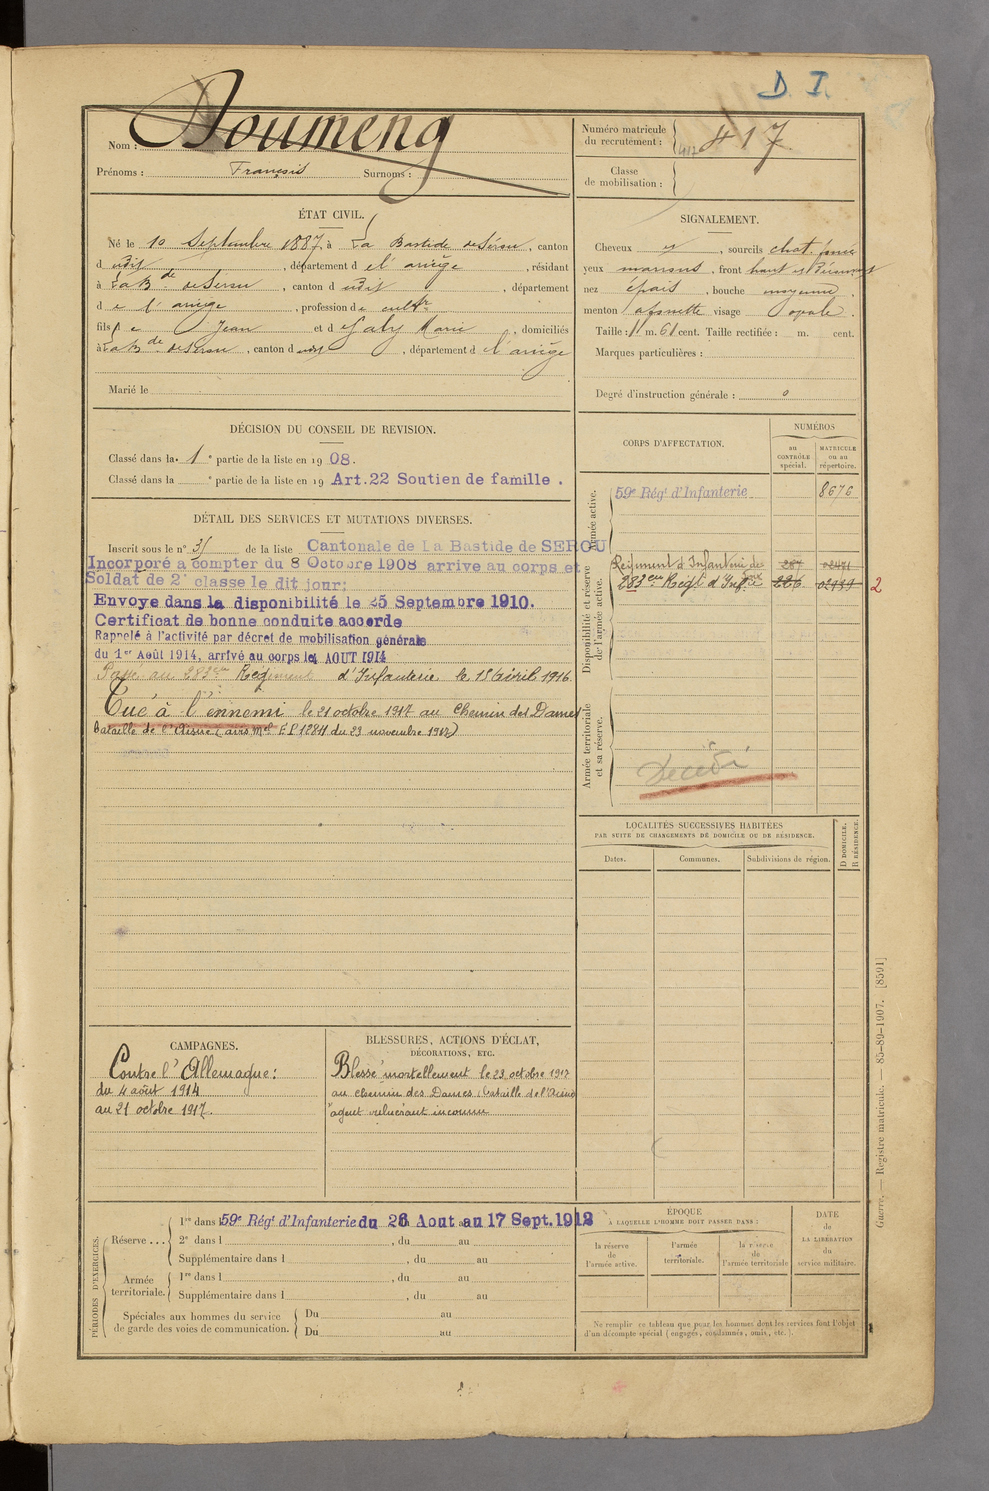 D. I.
Nom : Soumeng
Prénoms : François Surnoms :
Numéro matricule
du recrutement : 417 417
Classe
de mobilisation :
ÉTAT CIVIL.
Né le 10 Septembre 1887, à La Bastide de Sérou, canton
d udit, département d e l'ariège, résidant
à La Bde de Serou, canton d udit, département
d e l'ariège, profession de cultr
fils de Jean et d e Galy Marie, domiciliés
à La Bde de Serou, canton d udit, département d e l'ariège
Marié le
SIGNALEMENT.
Cheveux et, sourcils chat. foncé
yeux marrons, front haut et
nez épais, bouche moyenne,
menton à fossette visage ovale.
Taille : 1 m. 61 cent. Taille rectifiée : m. cent.
Marques particulières :
Degré d'instruction générale : 0
DÉCISION DU CONSEIL DE REVISION.
Classé dans la 1e partie de la liste en 1908.
Classé dans la e partie de la liste en 19 Art.22 Soutien de famille.
CORPS D'AFFECTATION.
NUMÉROS
au
CONTRÔLE
spécial.
MATRICULE
ou au
répertoire.
Armée active.
59e Régt d'Infanterie 8676
Disponibilité et réserve
de l'armée active.
Régiment d'Infanterie de
283ème Régt d'Infrie 2
Armée territoriale
et sa réserve.
Décédé
DÉTAIL DES SERVICES ET MUTATIONS DIVERSES.
Inscrit sous le n° 35 de la liste Cantonale de La Bastide de SEROU
Incorporé à compter du 8 Octobre 1908 arrive au corps et
Soldat de 2e classe le dit jour;
Envoye dans la disponibilité le 25 Septembre 1910.
Certificat de bonne conduite accorde
Rappelé à l'activité par décret de mobilisation générale
du 1er Août 1914, arrivé au corps le 4 AOUT 1914
Passé au 283ème Régiment d'Infanterie le 15 Avril 1916.
Tué à l'ennemi le 21 octobre 1917 au Chemin des Dames
Bataille de l'Aisne (avis Mel E.P. 1284 du 23 novembre 1917)
LOCALITÉS SUCCESSIVES HABITÉES
PAR SUITE DE CHANGEMENTS DE DOMICILE OU DE RÉSIDENCE.
Dates. Communes. Subdivisions de région.
D DOMICILE.
R RÉSIDENCE.
CAMPAGNES.
Contre l'Allemagne :
du 4 août 1914
au 21 octobre 1917.
BLESSURES, ACTIONS D'ÉCLAT,
DÉCORATIONS, ETC.
Blessé mortellement le 23 octobre 1917
au chemin des Dames (bataille de l'Aisne
agent vulnérant inconnu
PÉRIODES D'EXERCICES.
Réserve...
1re dans l 59e Régt d'Infanterie du 26 Aout au 17 Sept. 1912
2e dans l , du au
Supplémentaire dans l , du au
Armée
territoriale.
1re dans l , du au
Supplémentaire dans l , du au
Spéciales aux hommes du service
de garde des voies de communication.
Du au
Du au
ÉPOQUE
À LAQUELLE L'HOMME DOIT PASSER DANS :
la réserve
de
l'armée active.
l'armée
territoriale.
la réserve
de
l'armée territoriale
DATE
de
LA LIBÉRATION
du
service militaire.
Ne remplir ce tableau que pour les hommes dont les services font l'objet
d'un décompte spécial (engagés, condamnés, omis, etc.).
Guerre. — Registre matricule. — 85-89-1907. [8591]